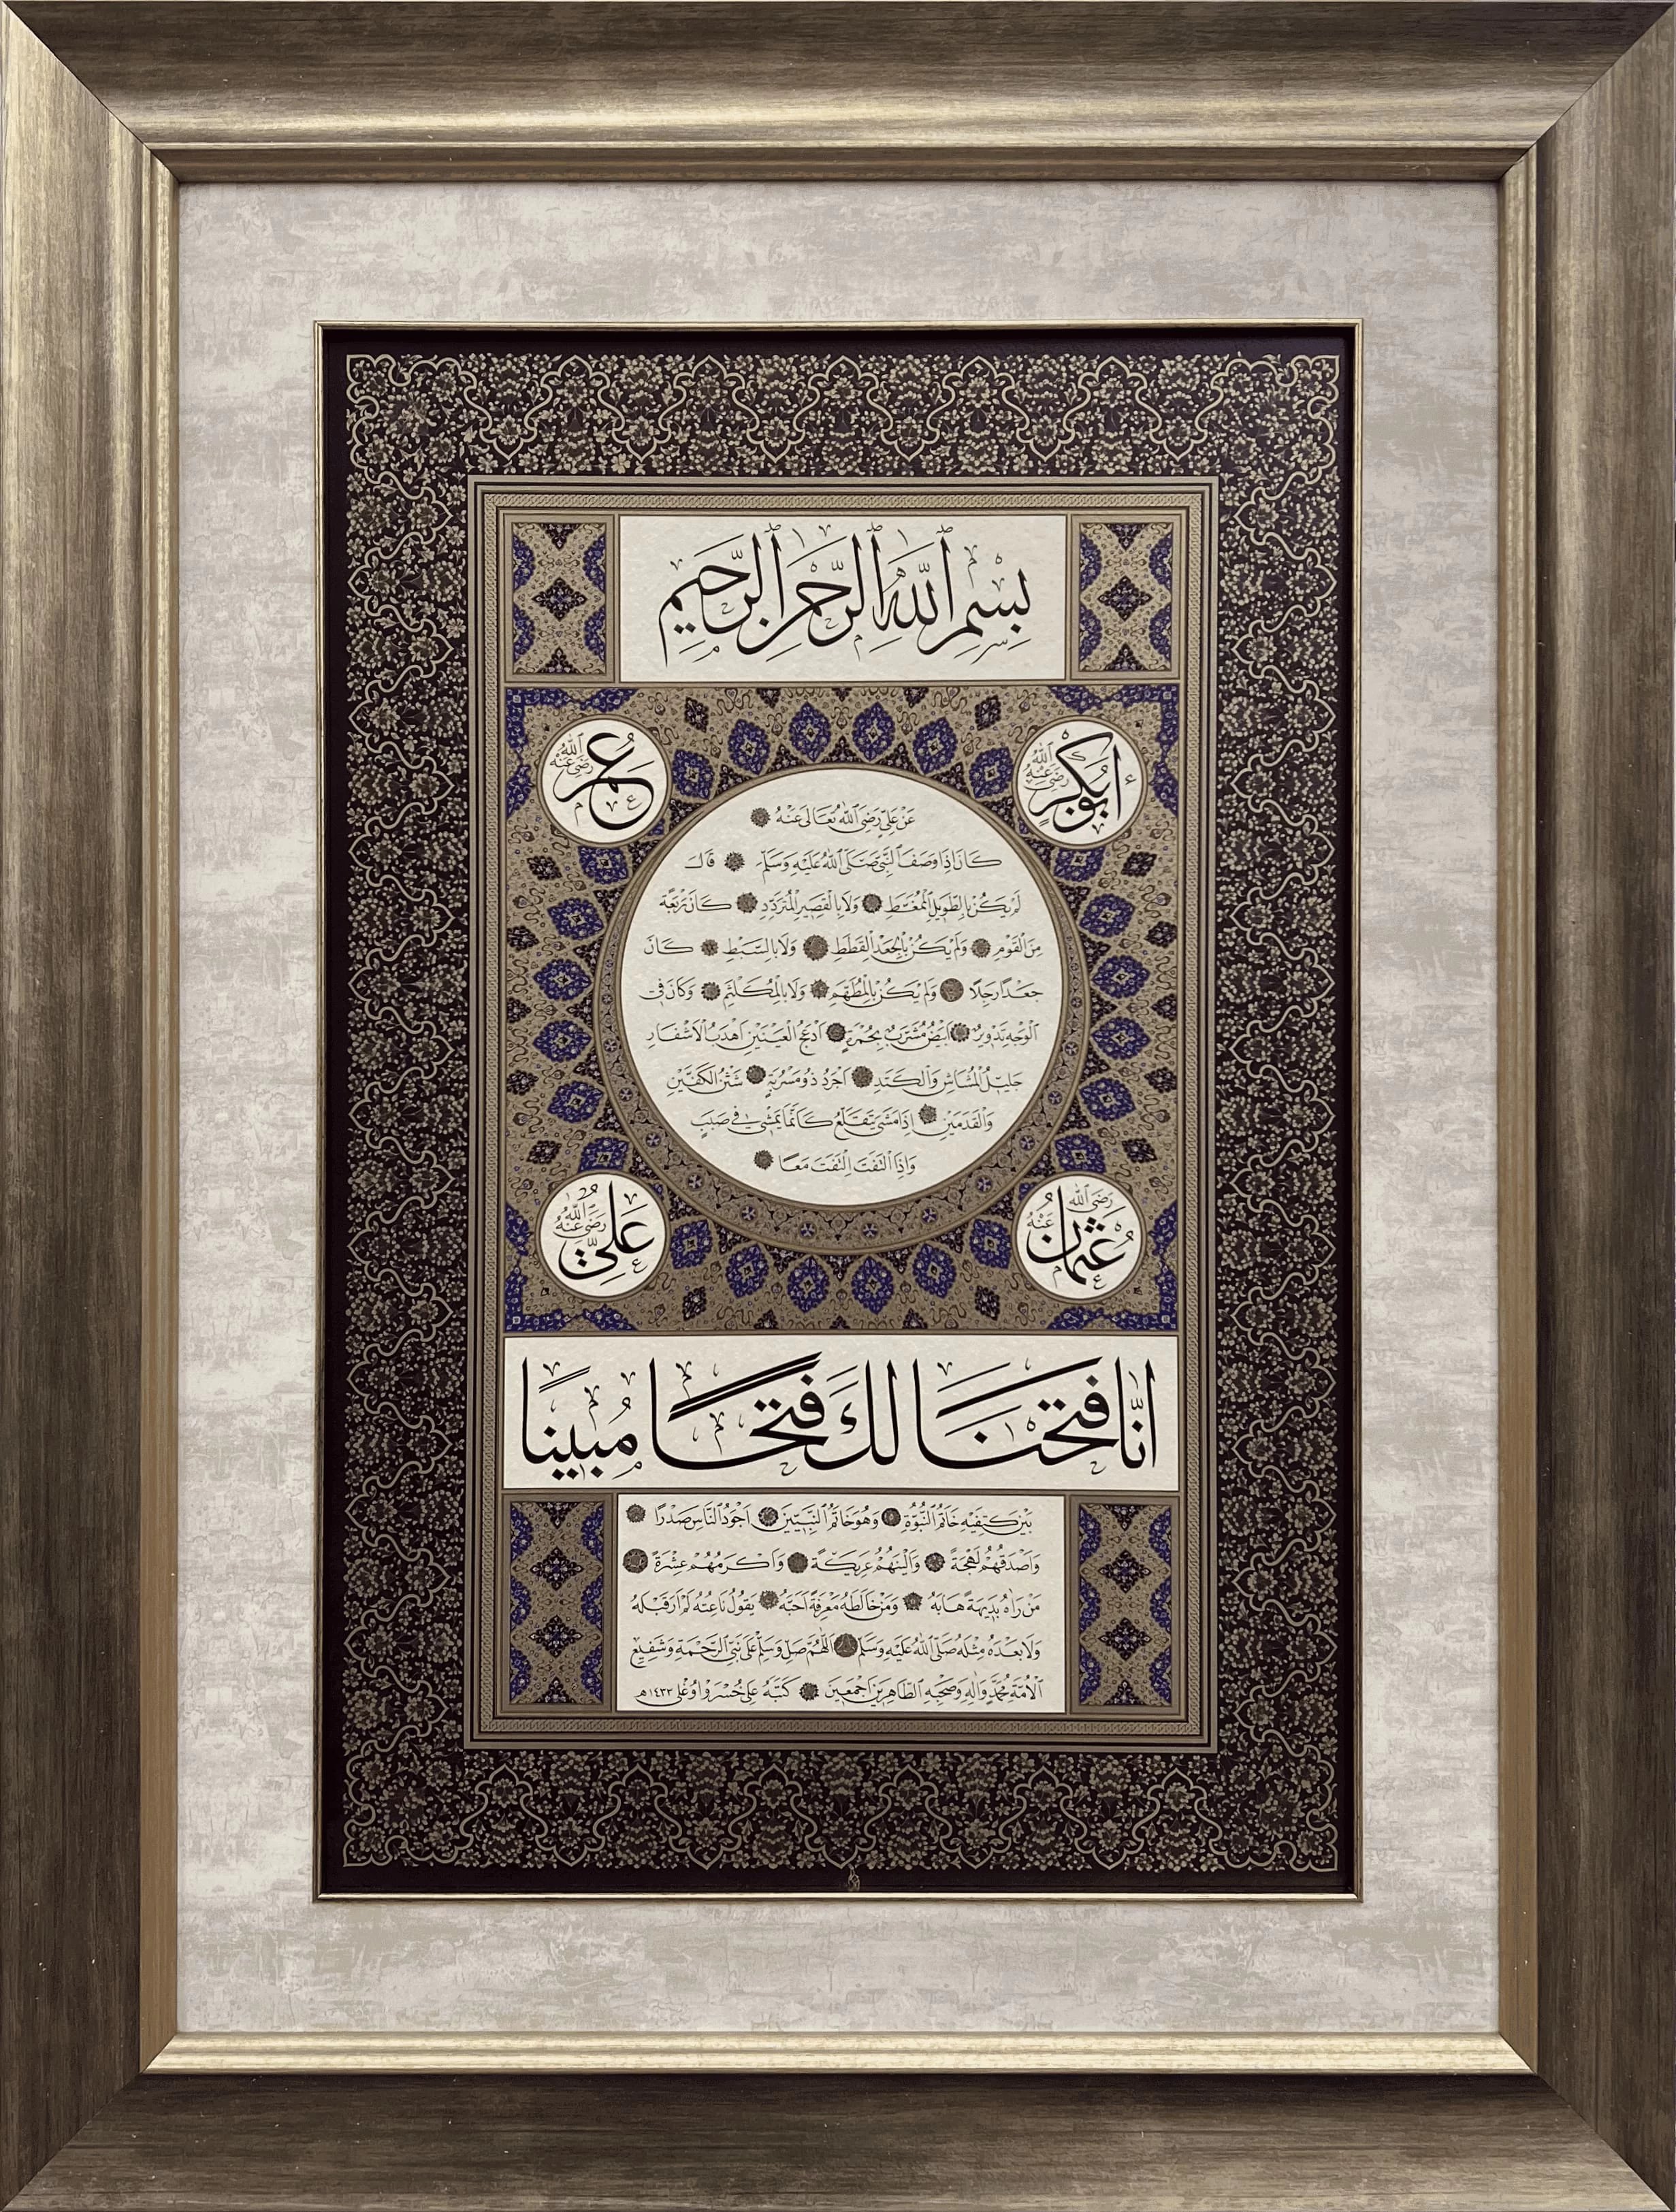 بِسْمِ ٱللّٰهِ ٱلرَّحْمٰنِ ٱلرَّحِيمِ
أَبُوبَكْرٍ رَضِيَ ٱللّٰهُ عَنْهُ
عُمَرُ رَضِيَ ٱللّٰهُ عَنْهُ
عَنْ عَلِيٍّ رَضِيَ ٱللّٰهُ تَعَالَى عَنْهُ
كَانَ اِذَا وَصَفَ ٱلنَّبِيَّ صَلَّى ٱللّٰهُ عَلَيْهِ وَسَلَّمَ قَالَ
لَمْ يَكُنْ بِالطَّوِيلِ الْمُمَّغِطِ وَلَا بِالْقَصِيرِ الْمُتَرَدِّدِ كَانَ رَبْعَةً
مِنَ الْقَوْمِ وَلَمْ يَكُنْ بِالْجَعْدِ الْقَطَطِ وَلَا بِالسَّبْطِ كَانَ
جَعْدًا رَجِلًا وَلَمْ يَكُنْ بِالْمُطَهَّمِ وَلَا بِالْمُكَلْثَمِ وَكَانَ فِي
الْوَجْهِ تَدْوِيرٌ اَبْيَضُ مُشْرَبٌ بِحُمْرَةٍ اَدْعَجُ الْعَيْنَيْنِ اَهْدَبُ الْاَشْفَارِ
جَلِيلُ الْمُشَاشِ وَالْكَتَدِ اَجْرَدُ ذُو مَسْرُبَةٍ شَثْنُ الْكَفَّيْنِ
وَالْقَدَمَيْنِ اِذَا مَشَى تَقَلَّعَ كَاَنَّمَا يَمْشِي فِي صَبَبٍ
وَاِذَا الْتَفَتَ الْتَفَتَ مَعًا
عُثْمَانُ رَضِيَ ٱللّٰهُ عَنْهُ
عَلِيٌّ رَضِيَ ٱللّٰهُ عَنْهُ
اِنَّا فَتَحْنَا لَكَ فَتْحًا مُبِينًا
بَيْنَ كَتِفَيْهِ خَاتَمُ النُّبُوَّةِ وَهُوَ خَاتَمُ النَّبِيِّينَ اَجْوَدُ النَّاسِ صَدْرًا
وَاَصْدَقُهُمْ لَهْجَةً وَاَلْيَنُهُمْ عَرِيكَةً وَاَكْرَمُهُمْ عِشْرَةً
مَنْ رَاٰهُ بَدِيهَةً هَابَهُ وَمَنْ خَالَطَهُ مَعْرِفَةً اَحَبَّهُ يَقُولُ نَاعِتُهُ لَمْ اَرَ قَبْلَهُ
وَلَا بَعْدَهُ مِثْلَهُ صَلَّى ٱللّٰهُ عَلَيْهِ وَسَلَّمَ اَللّٰهُمَّ صَلِّ وَسَلِّمْ عَلَى نَبِيِّ الرَّحْمَةِ وَشَفِيعِ
الْاُمَّةِ مُحَمَّدٍ وَاٰلِهِ وَصَحْبِهِ الطَّاهِرِينَ اَجْمَعِينَ كَتَبَهُ عَلِي خُسْرَو اوُغْلِى ١٤٣٢هـ